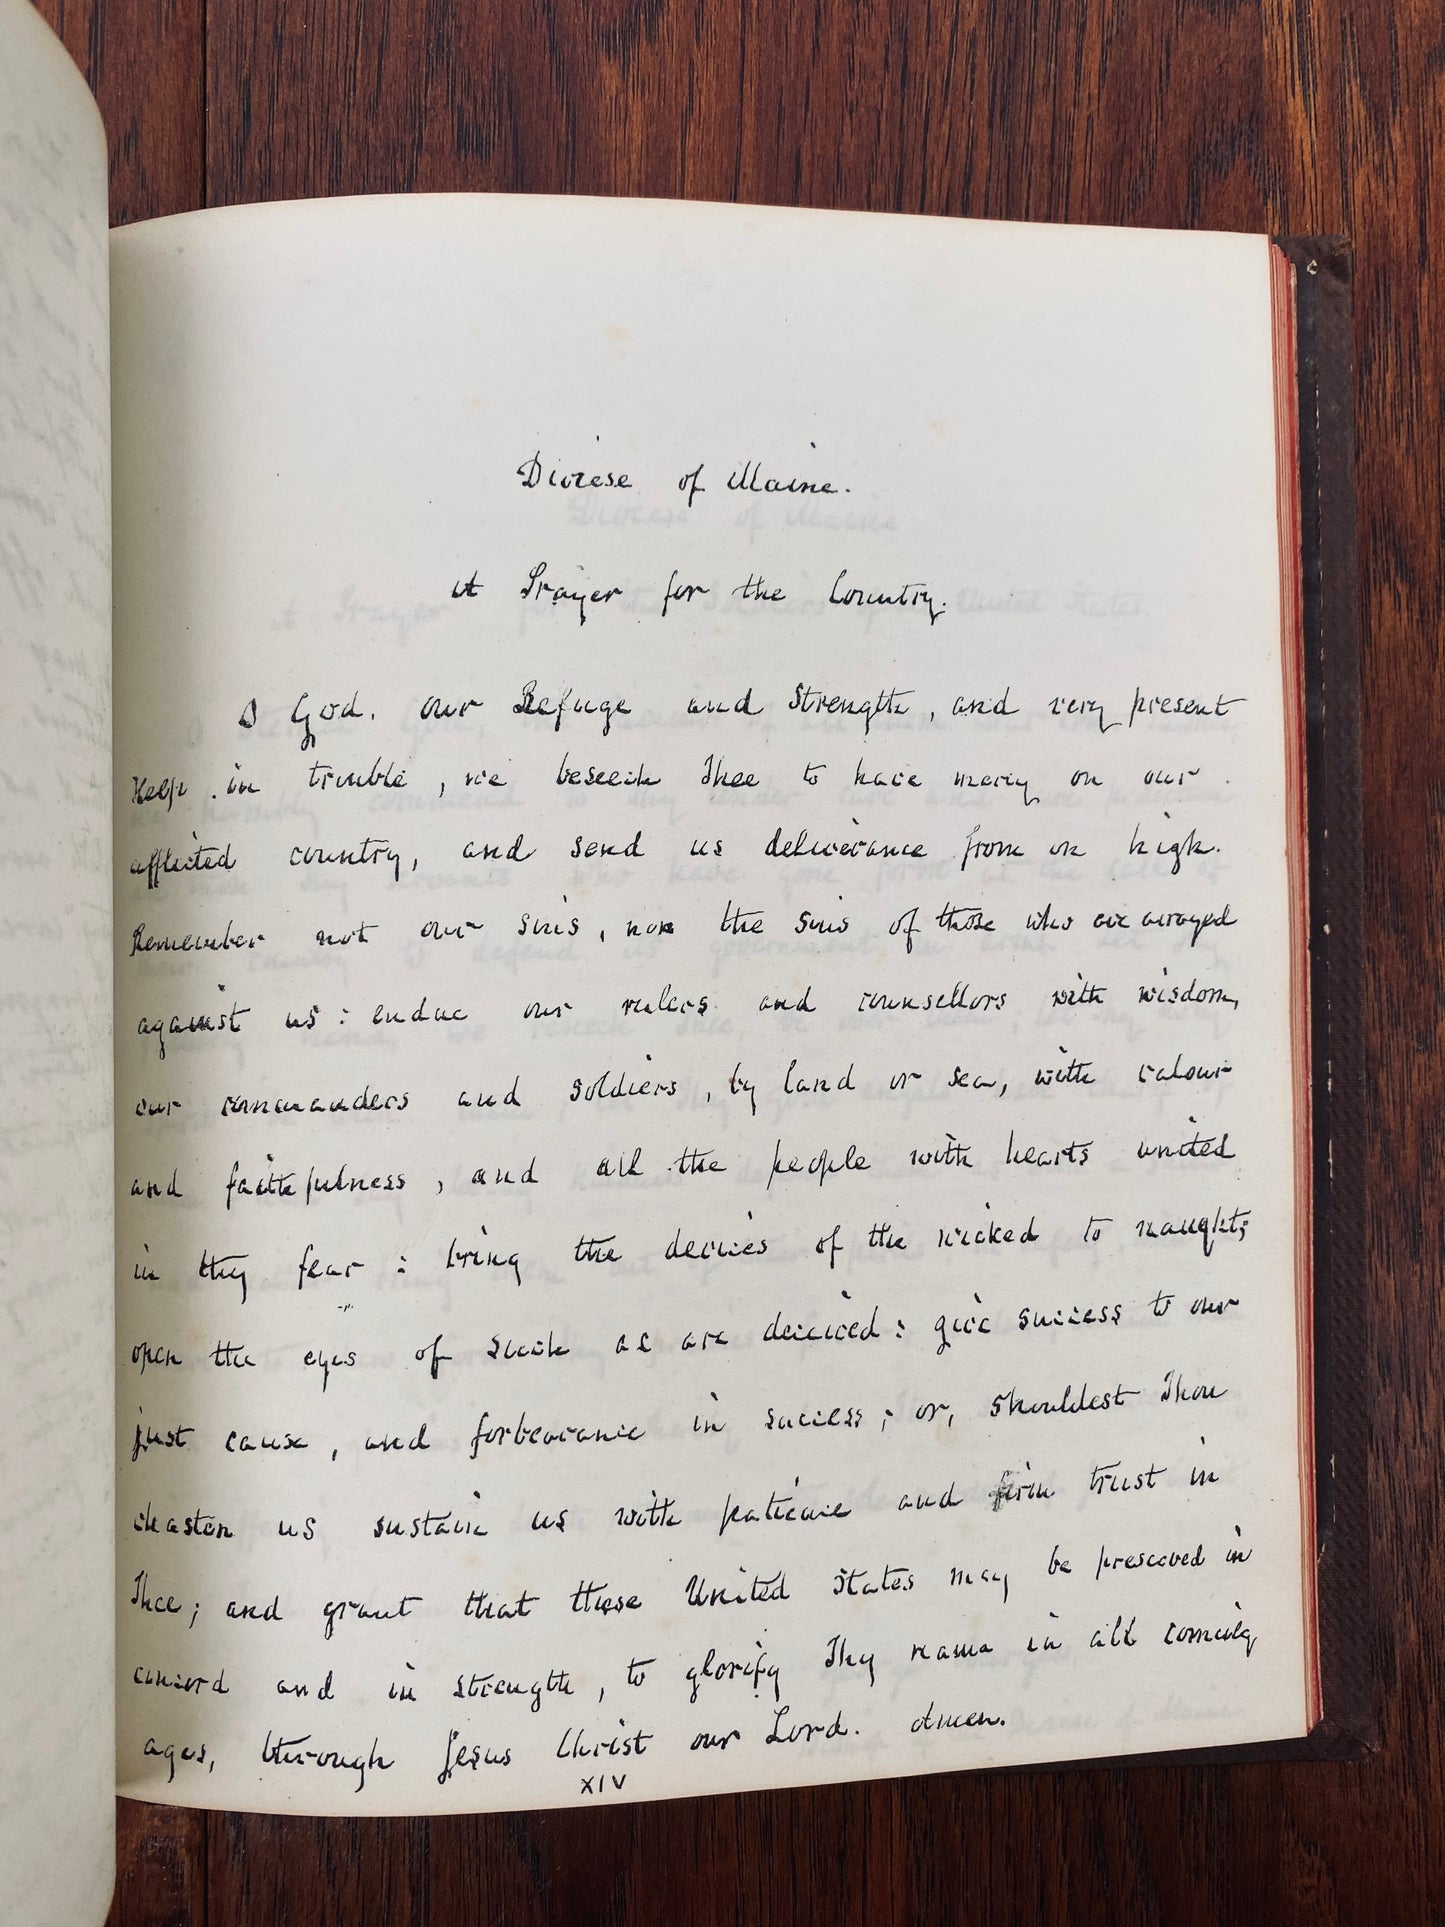 Diocese of Maine.
A Prayer for the Country.
O God, our Refuge and Strength, and very present
Help in trouble, we beseech Thee to have mercy on our
afflicted country, and send us deliverance from on high.
Remember not our sins, nor the sins of those who are arrayed
against us: endue our rulers and counsellors with wisdom,
our commanders and soldiers, by land or sea, with valour
and faithfulness, and all the people with hearts united
in thy fear: bring the devices of the wicked to naught;
open the eyes of such as are deceived: give success to our
just cause, and forbearance in success; or, shouldest Thou
chasten us sustain us with patience and firm trust in
Thee; and grant that these United States may be preserved in
concord and in strength, to glorify Thy name in all coming
ages, through Jesus Christ our Lord. Amen.
XIV